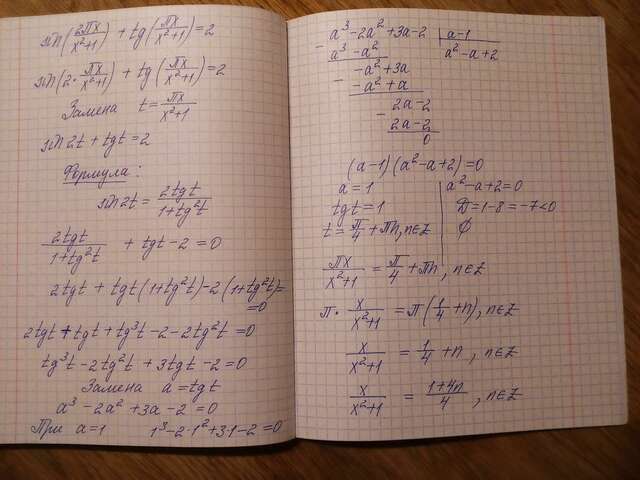 sin(2πx/x²+1) + tg(πx/x²+1) = 2
sin(2·πx/x²+1) + tg(πx/x²+1) = 2
Замена t = πx/x²+1
sin2t + tgt = 2
Формула:
sin2t = 2tgt/1+tg²t
2tgt/1+tg²t + tgt - 2 = 0
2tgt + tgt(1+tg²t) - 2(1+tg²t) =
=0
2tgt + tgt + tg³t - 2 - 2tg²t = 0
tg³t - 2tg²t + 3tgt - 2 = 0
Замена a = tgt
a³ - 2a² + 3a - 2 = 0
При a=1 1³-2·1²+3·1-2=0
a³-2a²+3a-2 | a-1
a³-a² a²-a+2
-a²+3a
-a²+a
2a-2
2a-2
0
(a-1)(a²-a+2)=0
a=1 a²-a+2=0
tgt=1 D=1-8=-7<0
t=π/4+πn, n∈Z ∅
πx/x²+1 = π/4 + πn, n∈Z
π·x/x²+1 = π(1/4+n), n∈Z
x/x²+1 = 1/4+n, n∈Z
x/x²+1 = 1+4n/4, n∈Z